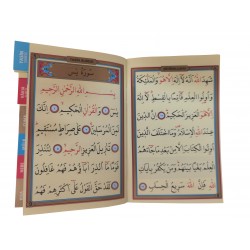 شَهِدَ اللهُ اَنَّهُ لَٓا اِلٰهَ اِلَّا هُوَ وَالْمَلٰٓئِكَةُ
وَاُولُوا الْعِلْمِ قَٓائِمًا بِالْقِسْطِ لَٓا اِلٰهَ
اِلَّا هُوَ الْعَزِيزُ الْحَكِيمُ اِنَّ الدِّينَ
عِنْدَ اللهِ الْاِسْلَامُ وَمَا اخْتَلَفَ الَّذِينَ
اُوتُوا الْكِتَابَ اِلَّا مِنْ بَعْدِ مَا جَٓاءَهُمُ
الْعِلْمُ بَغْيًا بَيْنَهُمْ وَمَنْ يَكْفُرْ بِاٰيَاتِ
اللهِ فَاِنَّ اللهَ سَرِيعُ الْحِسَابِ
سُورَةُ يٰسٓ
بِسْمِ اللهِ الرَّحْمٰنِ الرَّحِيمِ
يٰسٓ وَالْقُرْاٰنِ الْحَكِيمِ اِنَّكَ
لَمِنَ الْمُرْسَلِينَ عَلٰى صِرَاطٍ مُسْتَقِيمٍ
تَنْزِيلَ الْعَزِيزِ الرَّحِيمِ لِتُنْذِرَ
قَوْمًا مَٓا اُنْذِرَ اٰبَٓاؤُهُمْ فَهُمْ غَافِلُونَ
لَقَدْ حَقَّ الْقَوْلُ عَلٰٓى اَكْثَرِهِمْ فَهُمْ